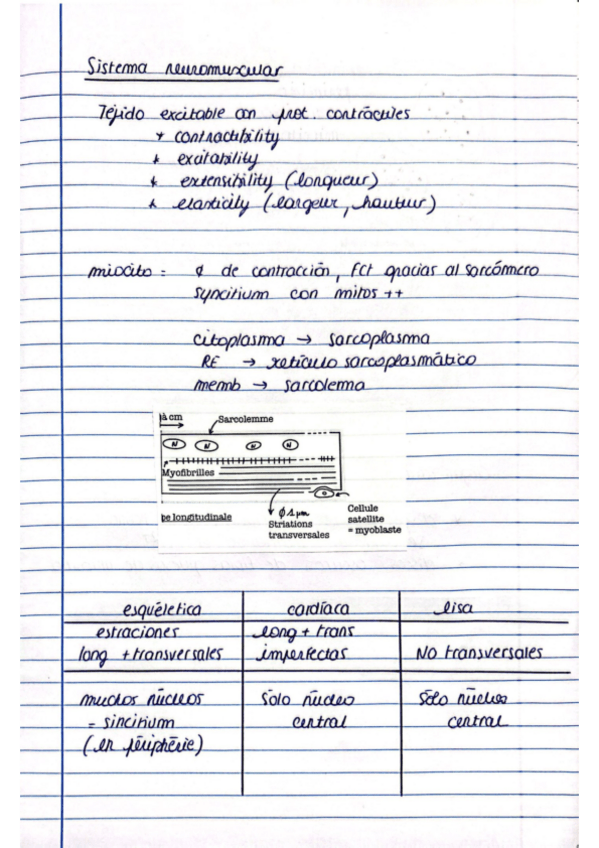 Sistema neuromuscular
Tejido excitable con prot. contráctiles
* contractibility
* excitability
* extensibility (longueur)
* elasticity (largeur, hauteur)
miocito = ¢ de contracción, Fct gracias al sarcómero
syncitium con mitos ++
citoplasma → sarcoplasma
RE → retículo sarcoplasmático
memb → sarcolema
à cm
Sarcolemme
N N N N
Myofibrilles
pe longitudinale
Ø 1 µm
Striations
transversales
Cellule
satellite
= myoblaste
esquéletica cardíaca lisa
estraciones long + trans
long + transversales imperfectas NO transversales
muchos núcleos Sólo núcleo Sólo núcleo
= sincitium central central
(en périphérie)